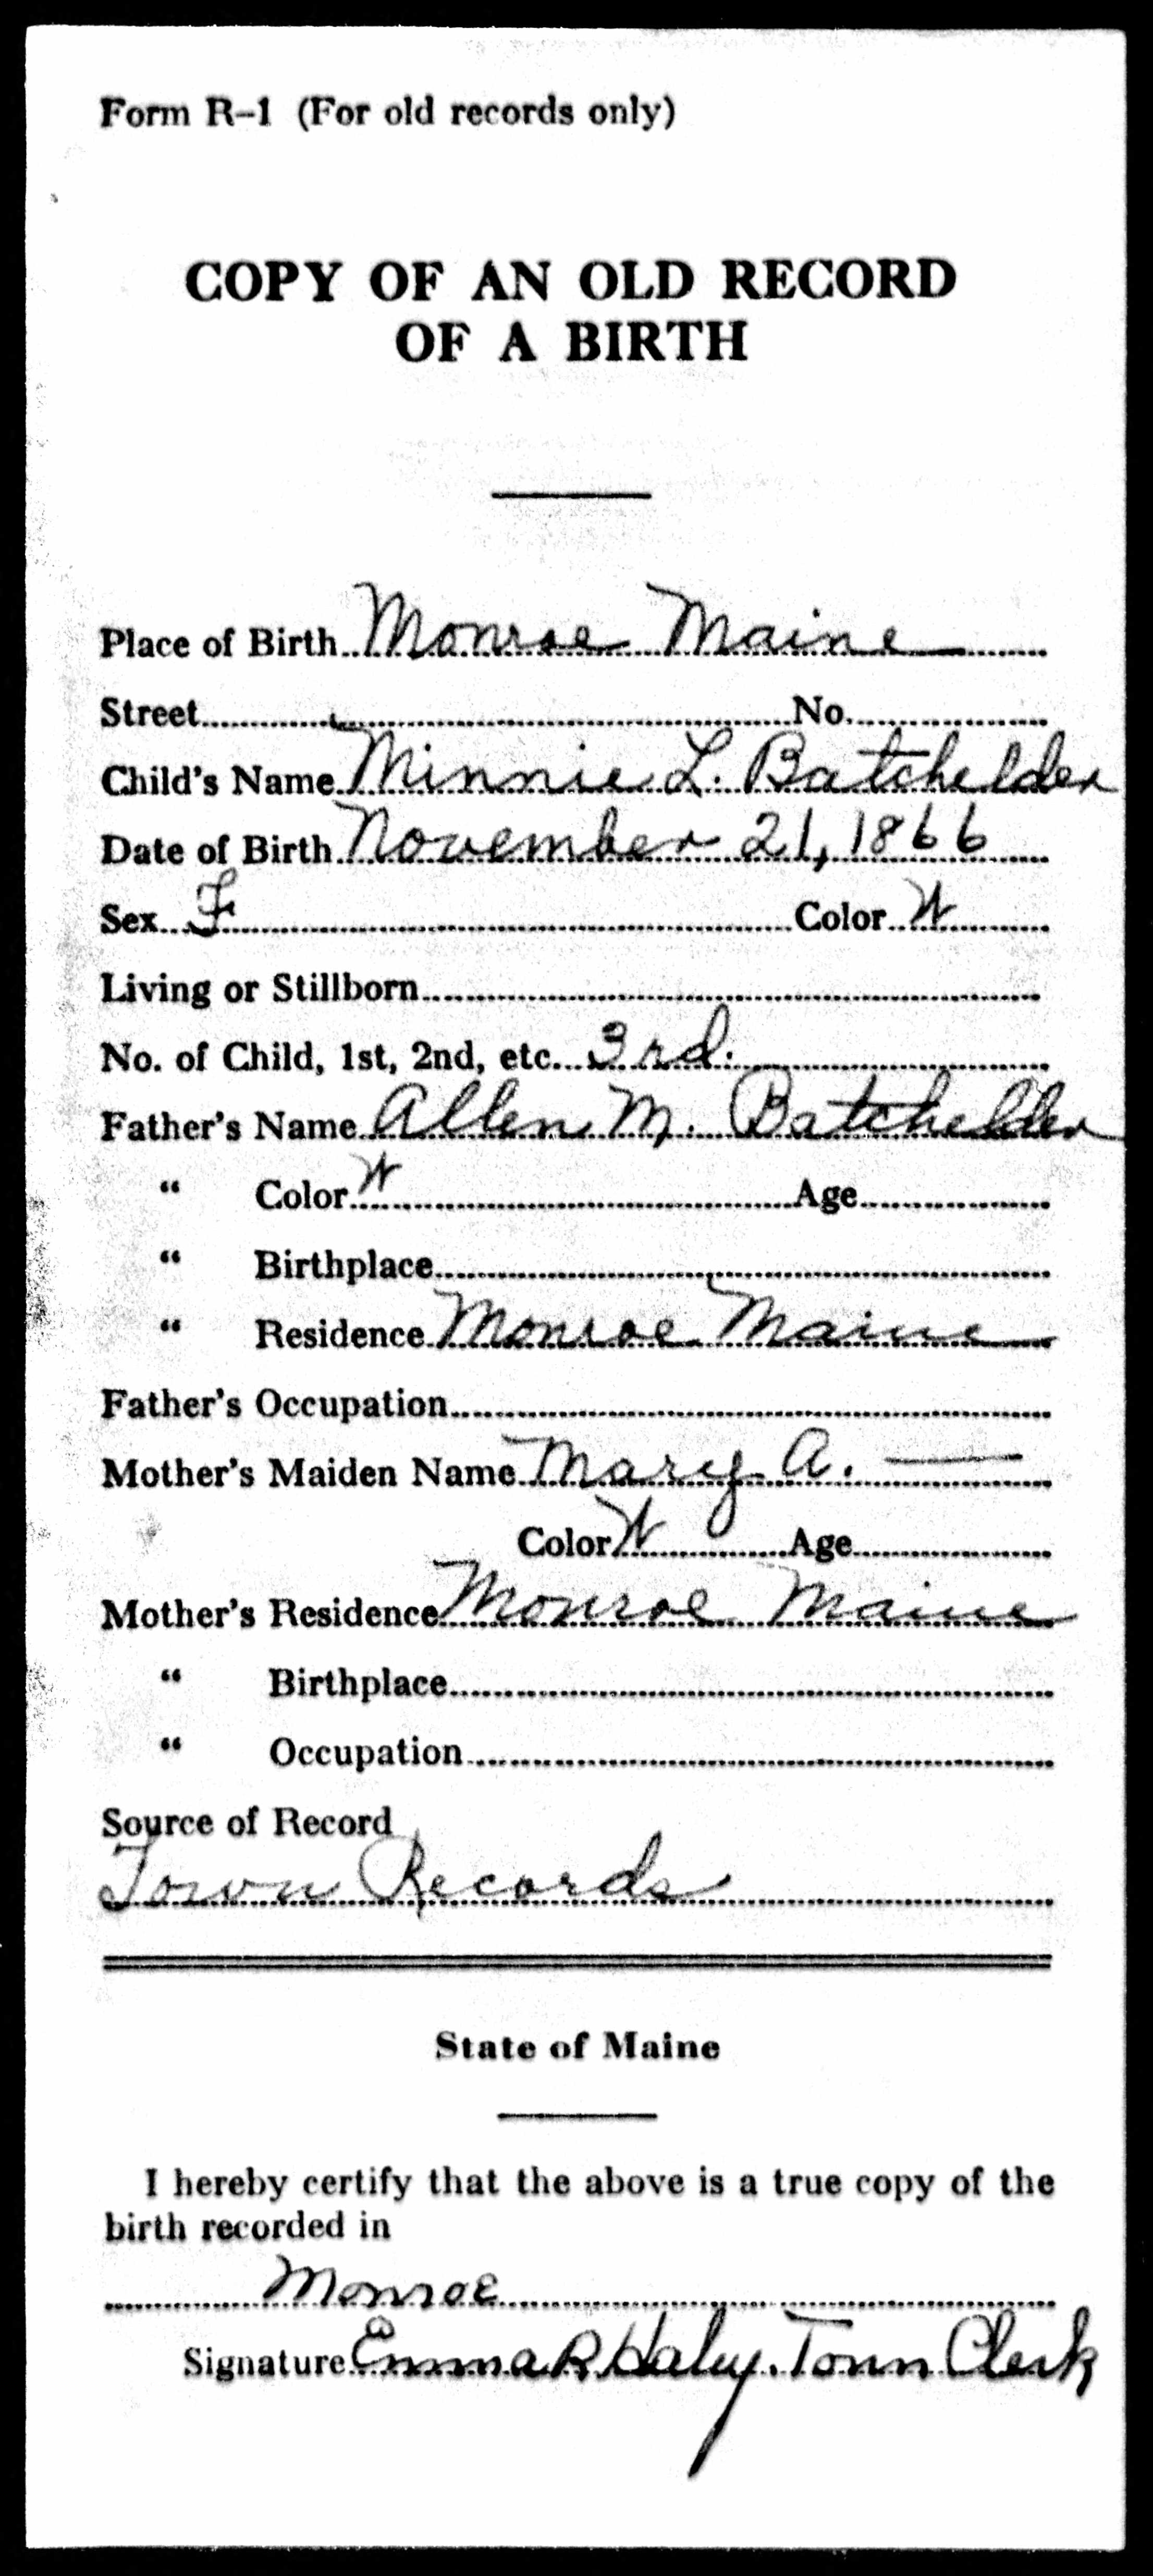 Form R-1 (For old records only)
COPY OF AN OLD RECORD
OF A BIRTH
Place of Birth Monroe Maine
Street No.
Child's Name Minnie L. Batchelder
Date of Birth November 21, 1866
Sex F Color W
Living or Stillborn
No. of Child, 1st, 2nd, etc. 3rd.
Father's Name Allen M. Batchelder
" Color W Age
" Birthplace
" Residence Monroe Maine
Father's Occupation
Mother's Maiden Name Mary A. —
Color W Age
Mother's Residence Monroe Maine
" Birthplace
" Occupation
Source of Record
Town Records
State of Maine
I hereby certify that the above is a true copy of the
birth recorded in
Monroe
Signature Emma R Haley. Town Clerk